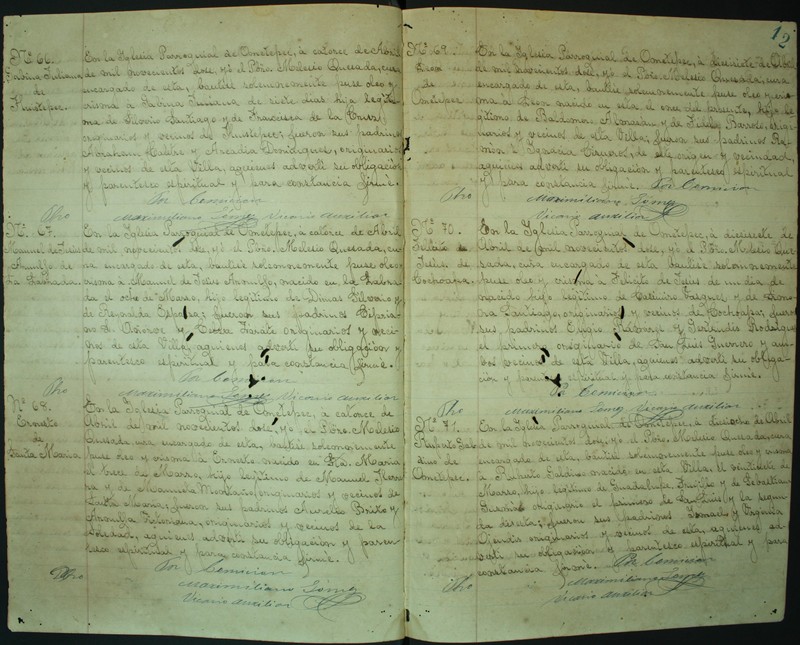 12
Nº 66.
Sabina Juliana
de
Huistepec.
En la Iglesia Parroquial de Ometepec, á catorce de Abril
de mil novecientos doce, yó el Pbro. Melesio Quesada, cura
encargado de esta, bauticé solemnemente puse oleo y
crisma á Sabina Juliana de siete dias hija legíti-
ma de Santiago y de Francisca de la Cruz
originarios y vecinos de Huistepec; fueron sus padrinos
Abraham y Arcadia Domínguez, originarios
y vecinos de esta Villa, aquienes advertí su obligación
y parentesco espiritual y para constancia firmé.
Por Comision
Pbro Maximiliano Gómez Vicario Auxiliar
Nº 67.
Manuel de Jesus
En la Iglesia Parroquial de Ometepec, á catorce de Abril
de mil novecientos doce, yó el Pbro. Melesio Quesada, cu-
ra encargado de esta, bauticé solemnemente puse oleo
crisma á Manuel de Jesus nacido en la
el ocho de Marzo, hijo legítimo de Dimas Silverio y
de fueron sus padrinos Cipria-
no y originarios y veci-
nos de esta Villa, aquienes advertí su obligación y
parentesco espiritual y para constancia firmé.
Por Comision
Pbro Maximiliano Gómez Vicario Auxiliar
Nº 68.
Ernesto
de
Santa María
En la Iglesia Parroquial de Ometepec, á catorce de
Abril de mil novecientos doce, yó el Pbro. Melesio
Quesada cura encargado de esta, bauticé solemnemente
puse oleo y crisma á Ernesto nacido en Sta. María
el trece de Marzo, hijo legítimo de Manuel
y de Manuela originarios y vecinos de
Santa María; fueron sus padrinos Aurelio Brito y
originarios y vecinos de la
aquienes advertí su obligación y paren-
tesco espiritual y para constancia firmé.
Por Comision
Pbro Maximiliano Gómez
Vicario Auxiliar
Nº 69.
de
Ometepec
En la Iglesia Parroquial de Ometepec, á diecisiete de Abril
de mil novecientos doce, yó el Pbro. Melesio Quesada, cura
encargado de esta, bauticé solemnemente puse oleo y cris-
ma á nacido en esta el once del presente, hijo le-
gítimo de y de origi-
narios y vecinos de esta Villa; fueron sus padrinos
é Ignacia de este origen y vecindad,
aquienes advertí su obligación y parentesco espiritual
y para constancia firmé. Por Comision
Pbro Maximiliano Gómez
Vicario Auxiliar
Nº 70.
Felicito de
Jesus de
Cochoapa.
En la Iglesia Parroquial de Ometepec, á diecisiete de
Abril de mil novecientos doce, yó el Pbro. Melesio Que-
sada, cura encargado de esta bauticé solemnemente
puse oleo y crisma á Felicito de Jesus de un dia de
nacido hijo legítimo de Casimiro y de
Santiago, originarios y vecinos de Cochoapa; fueron
sus padrinos y Rodríguez
el primero originario de San Luis Guerrero y am-
bos vecinos de esta Villa, aquienes advertí su obliga-
ción y parentesco espiritual y para constancia firmé.
Por Comision
Pbro Maximiliano Gómez Vicario Auxiliar
Nº 71.
de
Ometepec.
En la Iglesia Parroquial de Ometepec, á dieciocho de Abril
de mil novecientos doce, yó el Pbro. Melesio Quesada, cura
encargado de esta, bauticé solemnemente puse oleo y crisma
á nacido en esta Villa el veintisiete de
Marzo, hijo legítimo de Guadalupe y de Sebastiana
originario el primero de San Luis y la segun-
da de esta; fueron sus padrinos y Virginia
originarios y vecinos de esta, aquienes ad-
vertí su obligación y parentesco espiritual y para
constancia firmé. Por Comision
Pbro Maximiliano Gómez
Vicario Auxiliar